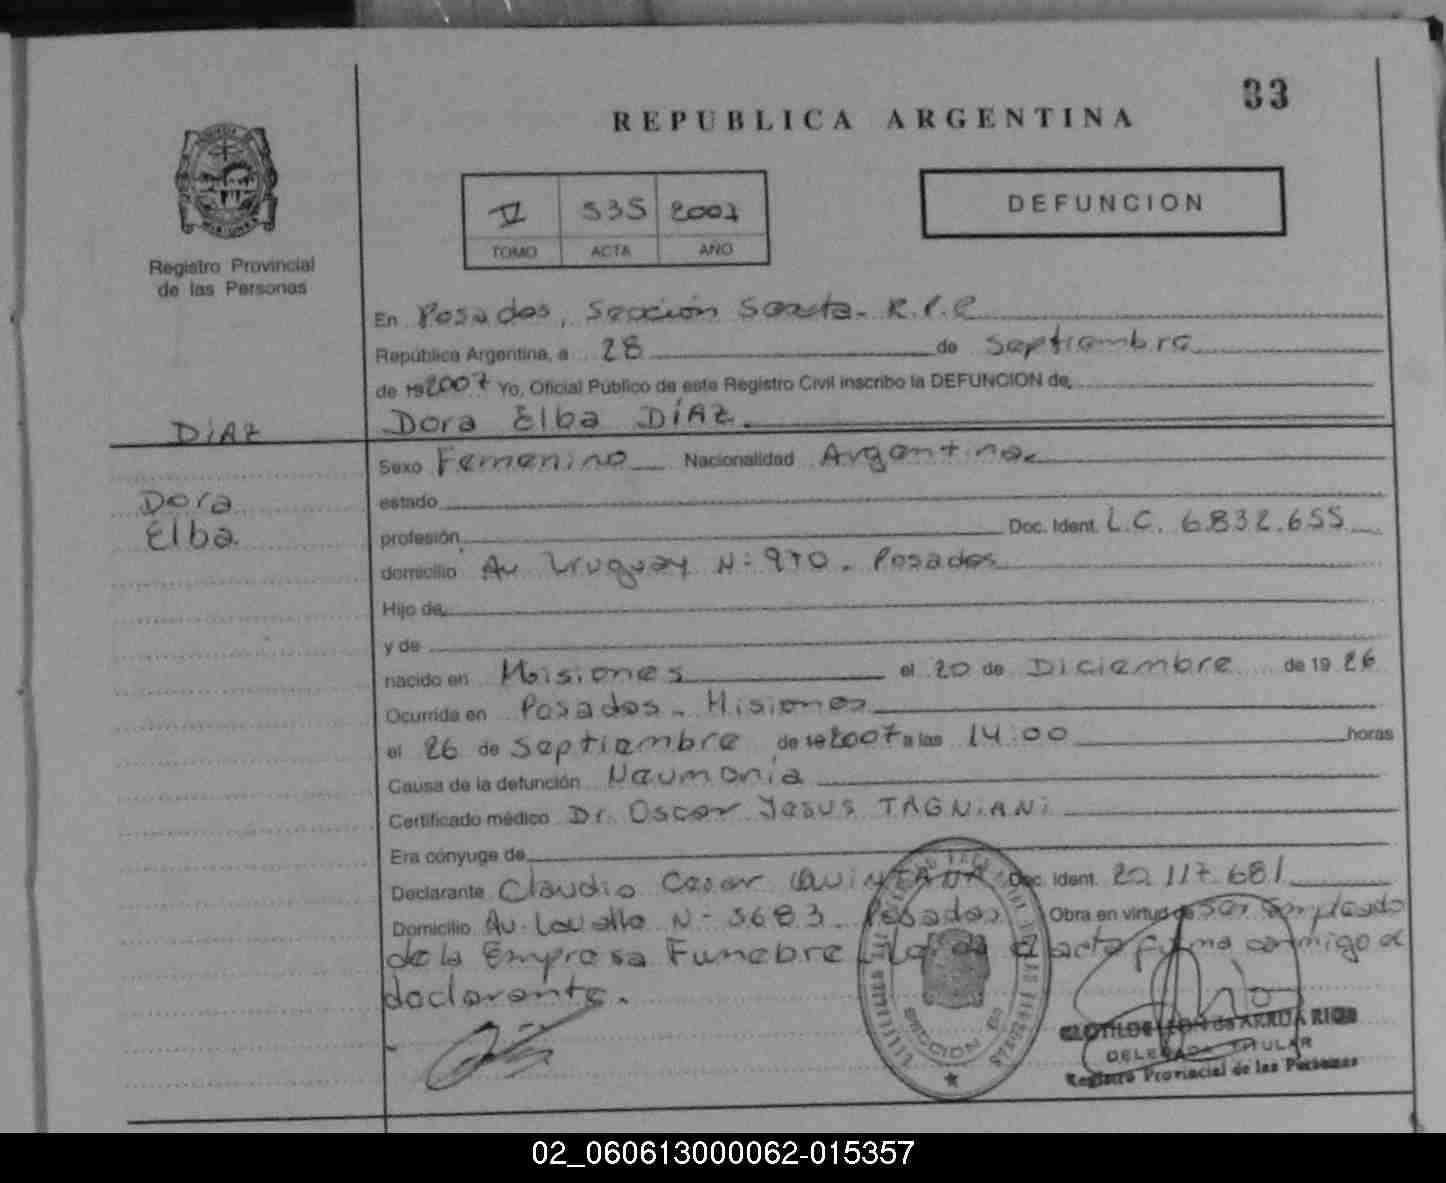 33
REPUBLICA ARGENTINA
IV 535 2007
TOMO ACTA AÑO
DEFUNCION
Registro Provincial
de las Personas
En Posadas, Sección Sexta. R.P.P.
República Argentina, a 28 de Septiembre
de 19 2007 Yo, Oficial Público de este Registro Civil inscribo la DEFUNCION de
DíAZ
Dora Elba DíAZ.
Sexo Femenino Nacionalidad Argentina.
Dora
Elba
estado
profesión Doc. Ident. L.C. 6.832.655
domicilio Av Uruguay N: 970. Posadas
Hijo de
y de
nacido en Misiones el 20 de Diciembre de 19 26
Ocurrida en Posadas - Misiones
el 26 de Septiembre de 19 2007 a las 14:00 horas
Causa de la defunción Neumonía
Certificado médico Dr. Oscar Jesus TAGNiANi
Era cónyuge de
Declarante Claudio Cesar QuiNTANA Doc. Ident. 20.117.681
Domicilio Av. Lavalle N- 3683. Posadas Obra en virtud de Ser Empleado
de la Empresa Funebre acta firma conmigo el
declarante.
SECCION 6a
de ARRUA RIOS
DELEGADA TITULAR
Registro Provincial de las Personas
02_060613000062-015357